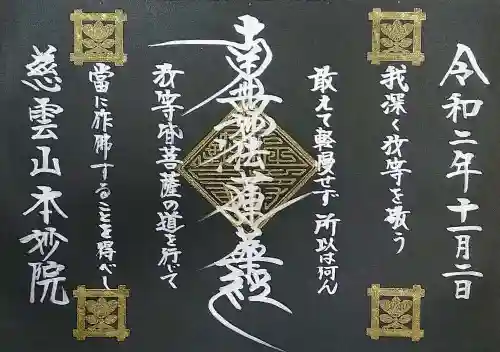 令和二年十一月二日
我深く汝等を敬う
敢えて軽慢せず 所以は何ん
南無妙法蓮華経
汝等皆菩薩の道を行じて
當に作佛することを得べし
慈雲山本妙院